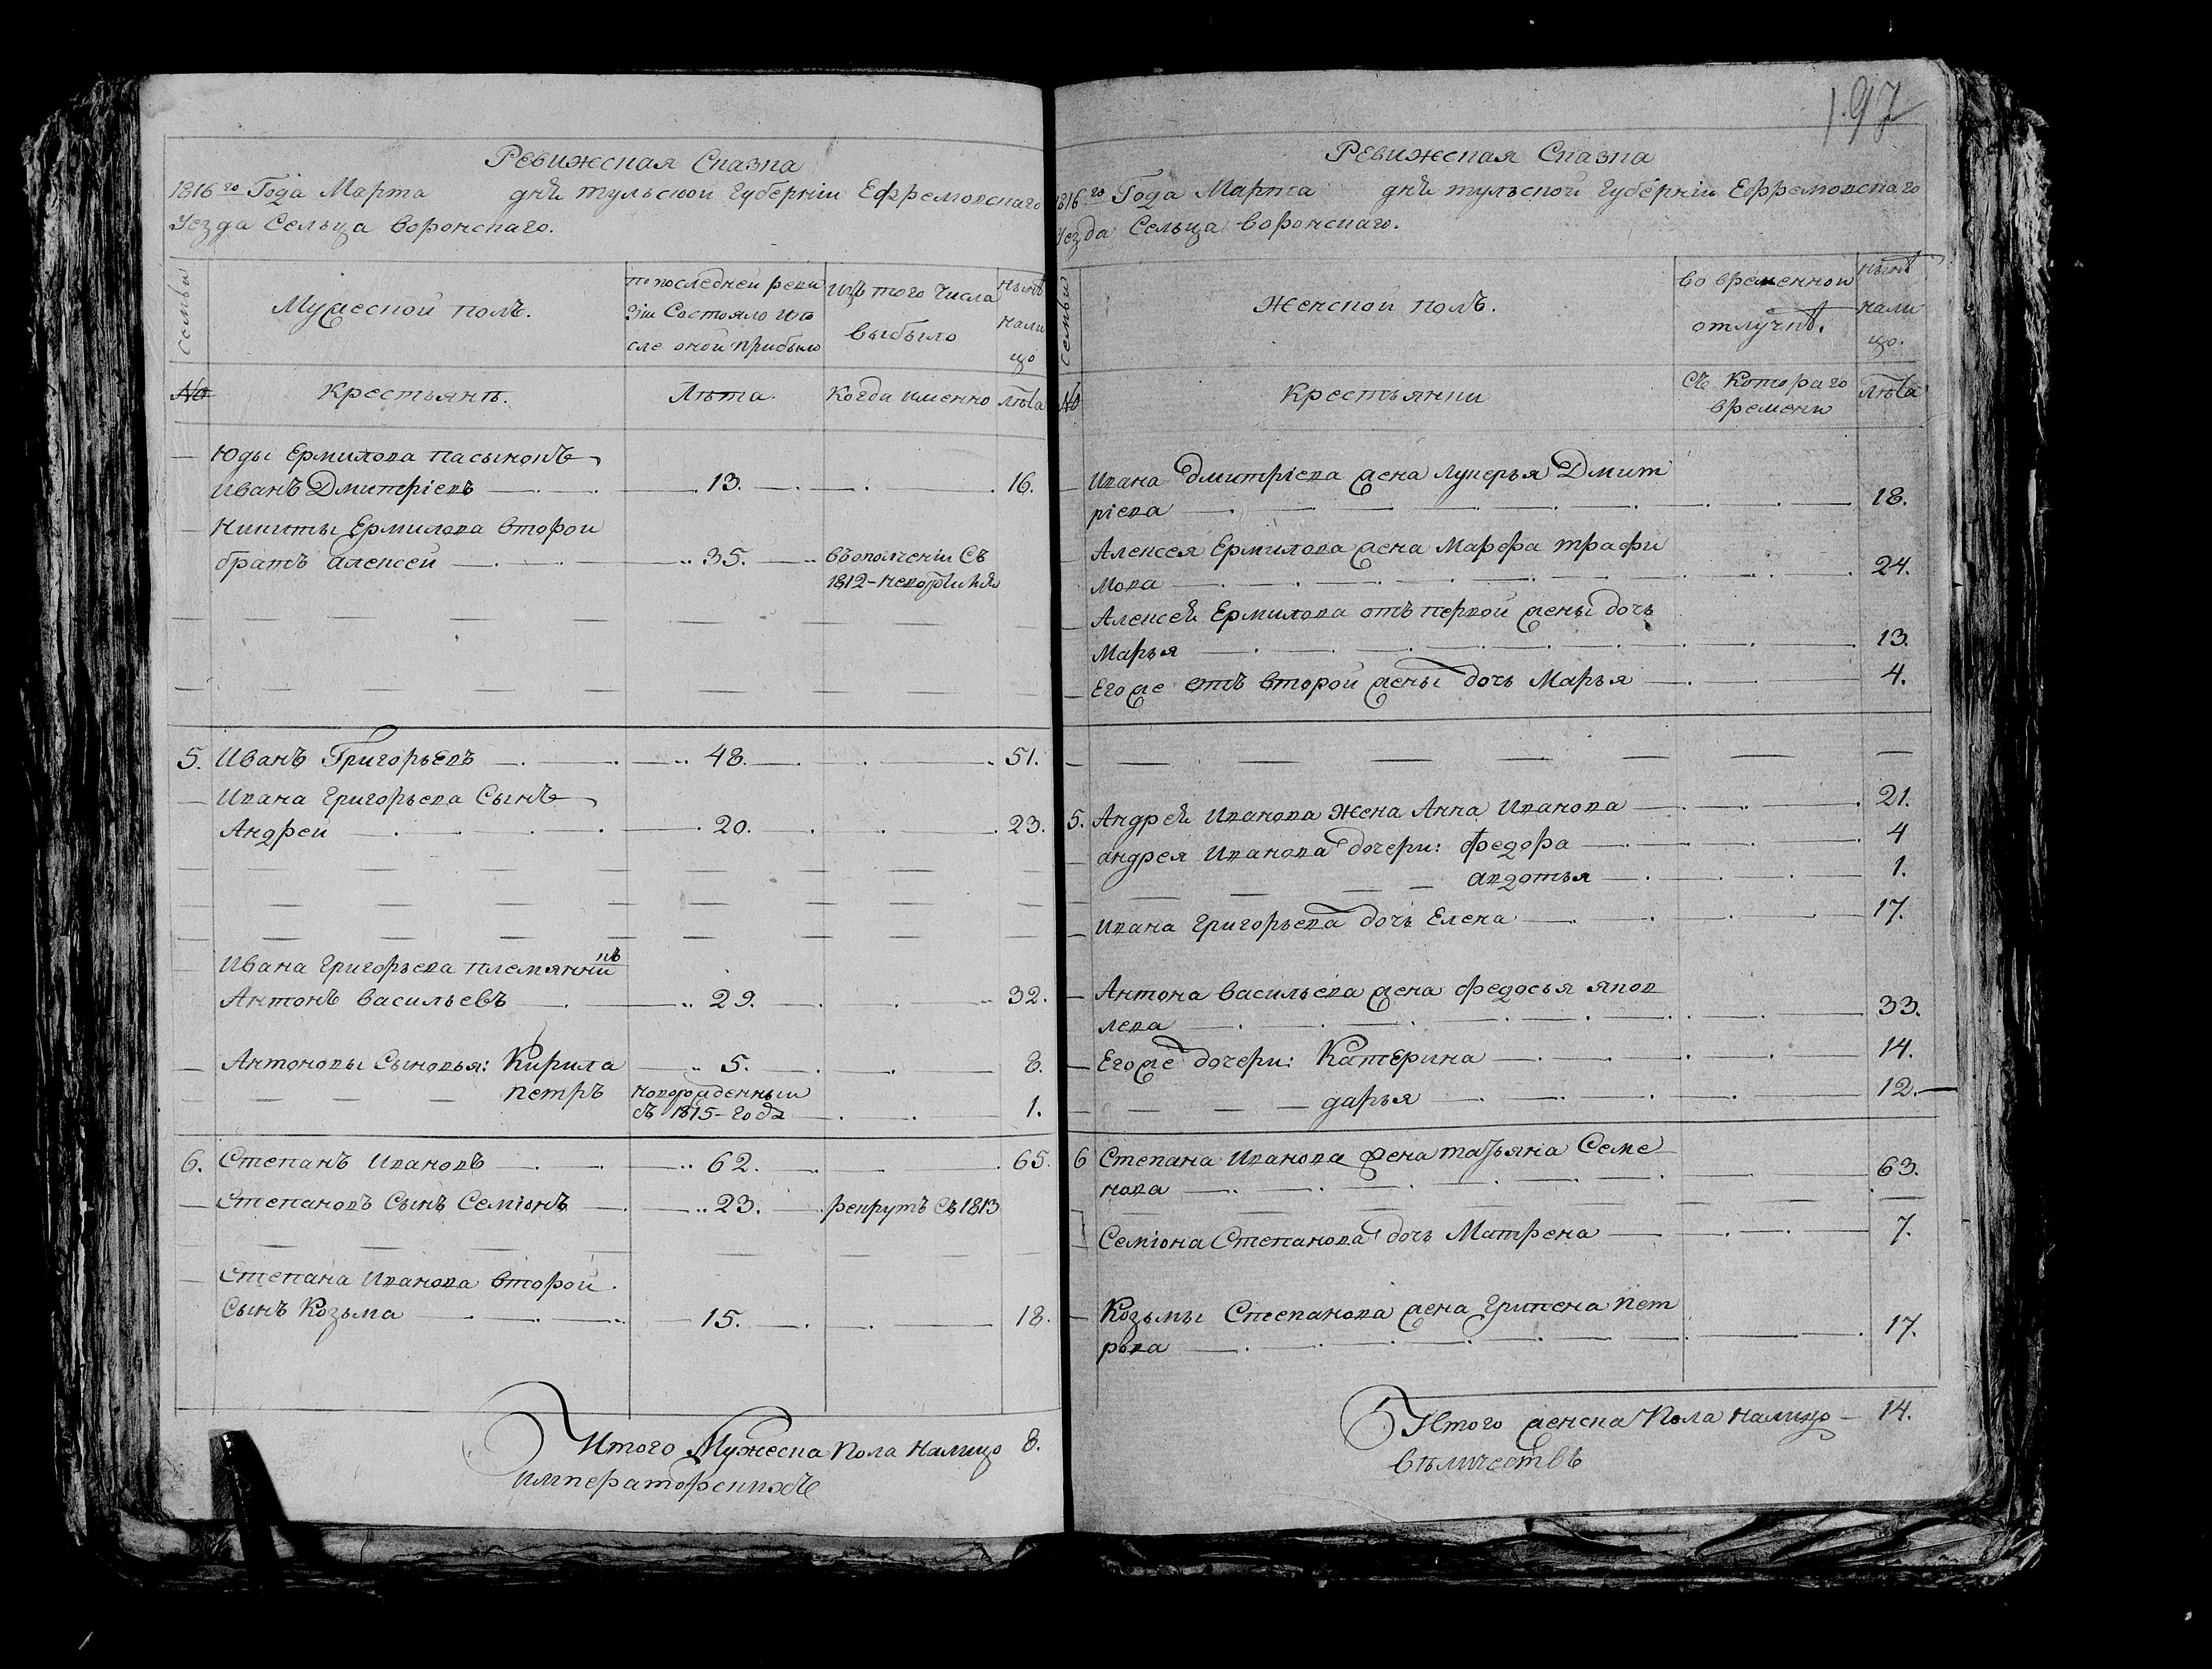 Ревижская Сказка
1816го Года Марта дня тульской губерніи Ефремовскаго
Уезда Сельца Воронскаго.
Семьи
Мужеской полъ.
по последней реви
зіи Состояло ипо
сле оной прибыло
Изъ того Числа
выбыло
нынѣ
нали
цо
№
Крестьянъ.
Лѣта
Когда именно
лѣта
Юды Ермилова пасынокъ
Иванъ Дмитріевъ 13. 16.
Никиты Ермилова второй
братъ алексей 35. въополченіи Съ
1812-
5. Иванъ Григорьевъ 48. 51.
Ивана Григорьева Сынъ
Андреи 20. 23.
Ивана Григорьева племянникъ
Антонъ васильевъ 29. 32.
Антоновы Сыновья: Кирила 5. 8.
петръ новорожденный
съ 1815-года 1.
6. Степанъ Ивановъ 62. 65.
Степановъ Сынъ Семіонъ 23. рекрутъ Съ 1813
Степана Иванова второй
Сынъ Козьма 15. 18.
Итого Мужеска пола налицо 8.
197
Ревижская Сказка
1816го Года Марта дня тульской губерніи Ефремовскаго
Уезда Сельца воронскаго.
Семьи
Женской полъ.
во временной
отлучкѣ.
нынѣ
нали
цо.
№
Крестьянки
Съ Котораго
времени
лѣта
Ивана Дмитріева жена Лукерья Дмит
ріева 18.
Алексея Ермилова жена Марфа трафи
мова 24.
Алексея Ермилова отъ первой жены дочь
Марья 13.
Егоже отъ второй жены дочь Марья 4.
5. Андрея Иванова жена Анна Иванова 21.
андрея Иванова дочери: федора 4
авдотья 1.
Ивана Григорьева дочь Елена 17.
Антона васильева жена федосья яков
лева 33.
Егоже дочери: Катерина 14.
дарья 12.
6 Степана Иванова жена татьяна Семе
нова 63.
Семіона Степанова дочь Матрена 7.
Козьмы Степанова жена Грипена пет
рова 17.
Итого женска пола налицо 14.